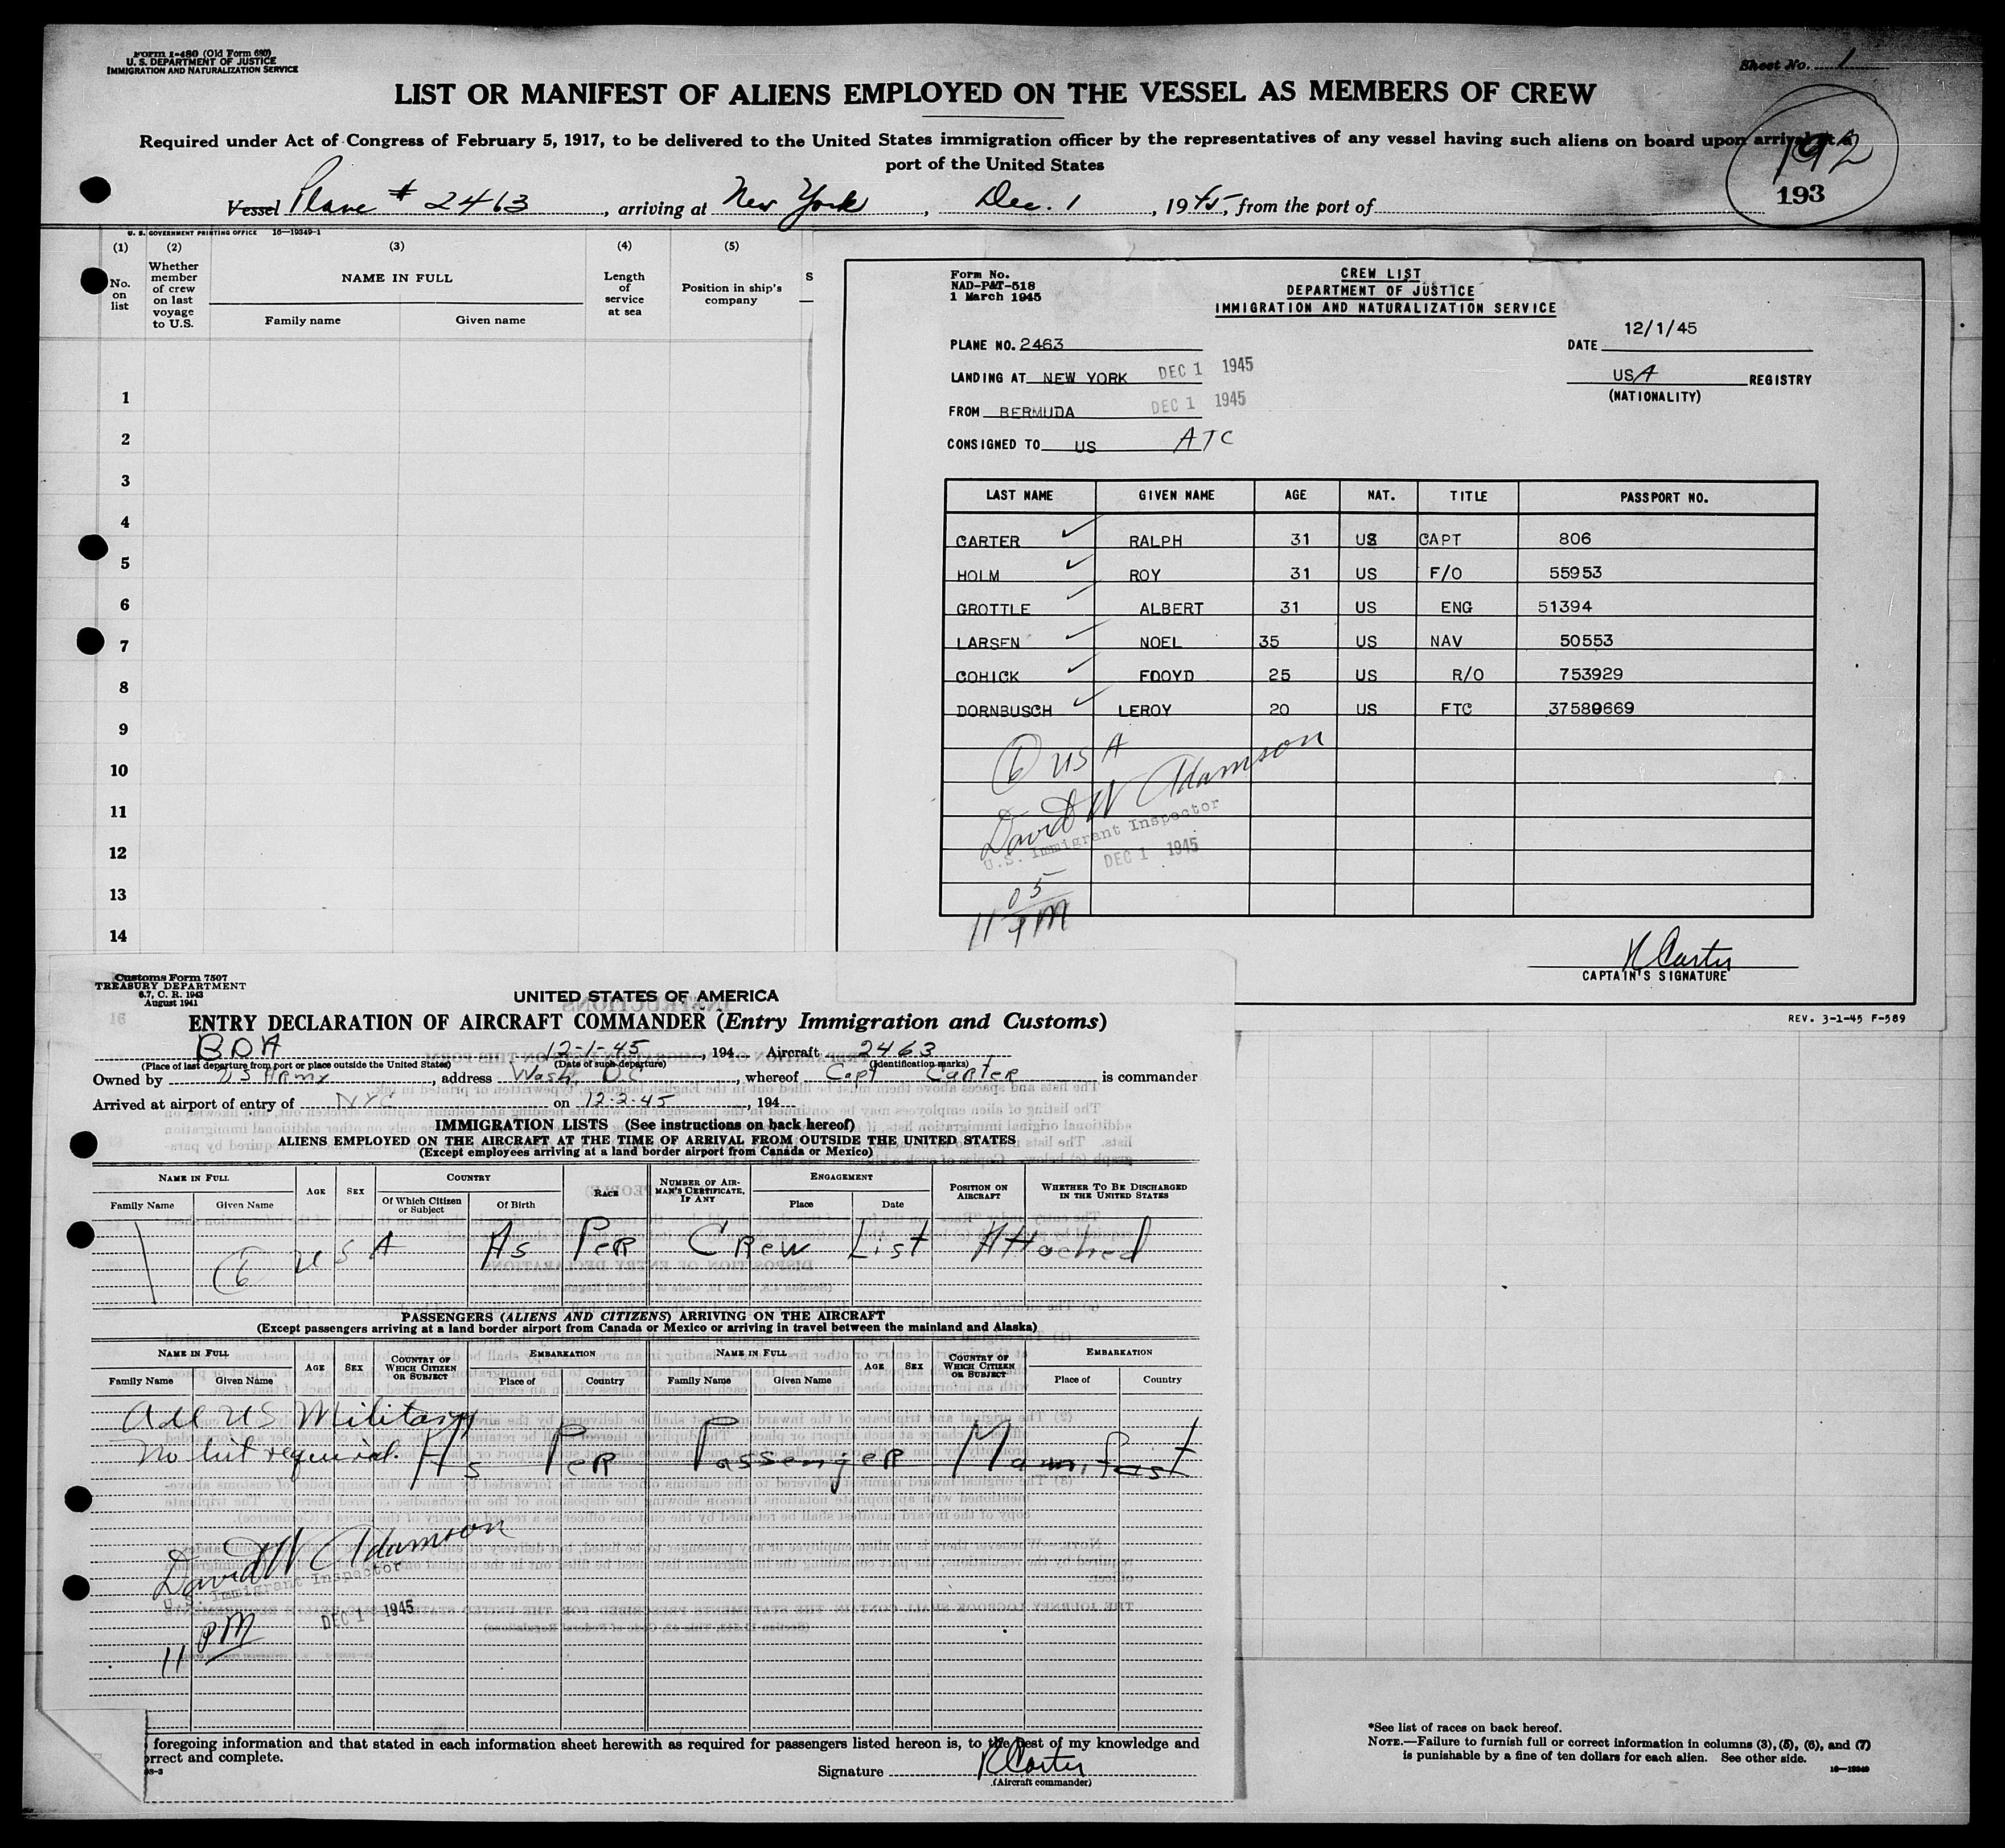 Form I-480 (Old Form 680)
U. S. DEPARTMENT OF JUSTICE
IMMIGRATION AND NATURALIZATION SERVICE
Sheet No. 1
LIST OR MANIFEST OF ALIENS EMPLOYED ON THE VESSEL AS MEMBERS OF CREW
Required under Act of Congress of February 5, 1917, to be delivered to the United States immigration officer by the representatives of any vessel having such aliens on board upon arrival at a
port of the United States
192
193
Vessel Plane # 2463, arriving at New York, Dec. 1, 1945, from the port of
U. S. GOVERNMENT PRINTING OFFICE 16—19349-1
(1) (2) (3) (4) (5)
No. on list
Whether member of crew on last voyage to U.S.
NAME IN FULL
Family name Given name
Length of service at sea
Position in ship's company
S
1
2
3
4
5
6
7
8
9
10
11
12
13
14
Form No.
NAD-P&T-518
1 March 1945
CREW LIST
DEPARTMENT OF JUSTICE
IMMIGRATION AND NATURALIZATION SERVICE
PLANE NO. 2463
DATE 12/1/45
LANDING AT NEW YORK DEC 1 1945
USA REGISTRY
(NATIONALITY)
FROM BERMUDA DEC 1 1945
CONSIGNED TO US ATC
LAST NAME GIVEN NAME AGE NAT. TITLE PASSPORT NO.
CARTER RALPH 31 US CAPT 806
HOLM ROY 31 US F/O 55953
GROTTLE ALBERT 31 US ENG 51394
LARSEN NOEL 35 US NAV 50553
COHICK FDOYD 25 US R/O 753929
DORNBUSCH LEROY 20 US FTC 37589669
6 USA
David W Adamson
U.S. Immigrant Inspector
DEC 1 1945
11 05 PM
R Carter
CAPTAIN'S SIGNATURE
REV. 3-1-45 F-589
Customs Form 7507
TREASURY DEPARTMENT
6.7, C. R. 1943
August 1941
UNITED STATES OF AMERICA
ENTRY DECLARATION OF AIRCRAFT COMMANDER (Entry Immigration and Customs)
BDA 12-1-45, 194 Aircraft 2463
(Place of last departure from port or place outside the United States) (Date of such departure) (Identification marks)
Owned by US Army, address Wash, D.C., whereof Capt Carter is commander
Arrived at airport of entry of NYC on 12-2-45, 194
IMMIGRATION LISTS (See instructions on back hereof)
ALIENS EMPLOYED ON THE AIRCRAFT AT THE TIME OF ARRIVAL FROM OUTSIDE THE UNITED STATES
(Except employees arriving at a land border airport from Canada or Mexico)
NAME IN FULL AGE SEX COUNTRY RACE NUMBER OF AIRMAN'S CERTIFICATE, IF ANY ENGAGEMENT POSITION ON AIRCRAFT WHETHER TO BE DISCHARGED IN THE UNITED STATES
Family Name Given Name Of Which Citizen or Subject Of Birth Place Date
6 USA As Per Crew List Attached
PASSENGERS (ALIENS AND CITIZENS) ARRIVING ON THE AIRCRAFT
(Except passengers arriving at a land border airport from Canada or Mexico or arriving in travel between the mainland and Alaska)
NAME IN FULL AGE SEX COUNTRY OF WHICH CITIZEN OR SUBJECT EMBARKATION NAME IN FULL AGE SEX COUNTRY OF WHICH CITIZEN OR SUBJECT EMBARKATION
Family Name Given Name Place of Country Family Name Given Name Place of Country
All US Military
No list required. As Per Passenger Manifest
David W Adamson
U.S. Immigrant Inspector
DEC 1 1945
11 PM
foregoing information and that stated in each information sheet herewith as required for passengers listed hereon is, to the best of my knowledge and
orrect and complete.
Signature R Carter
(Aircraft commander)
*See list of races on back hereof.
NOTE.—Failure to furnish full or correct information in columns (3), (5), (6), and (7)
is punishable by a fine of ten dollars for each alien. See other side.
16—19349